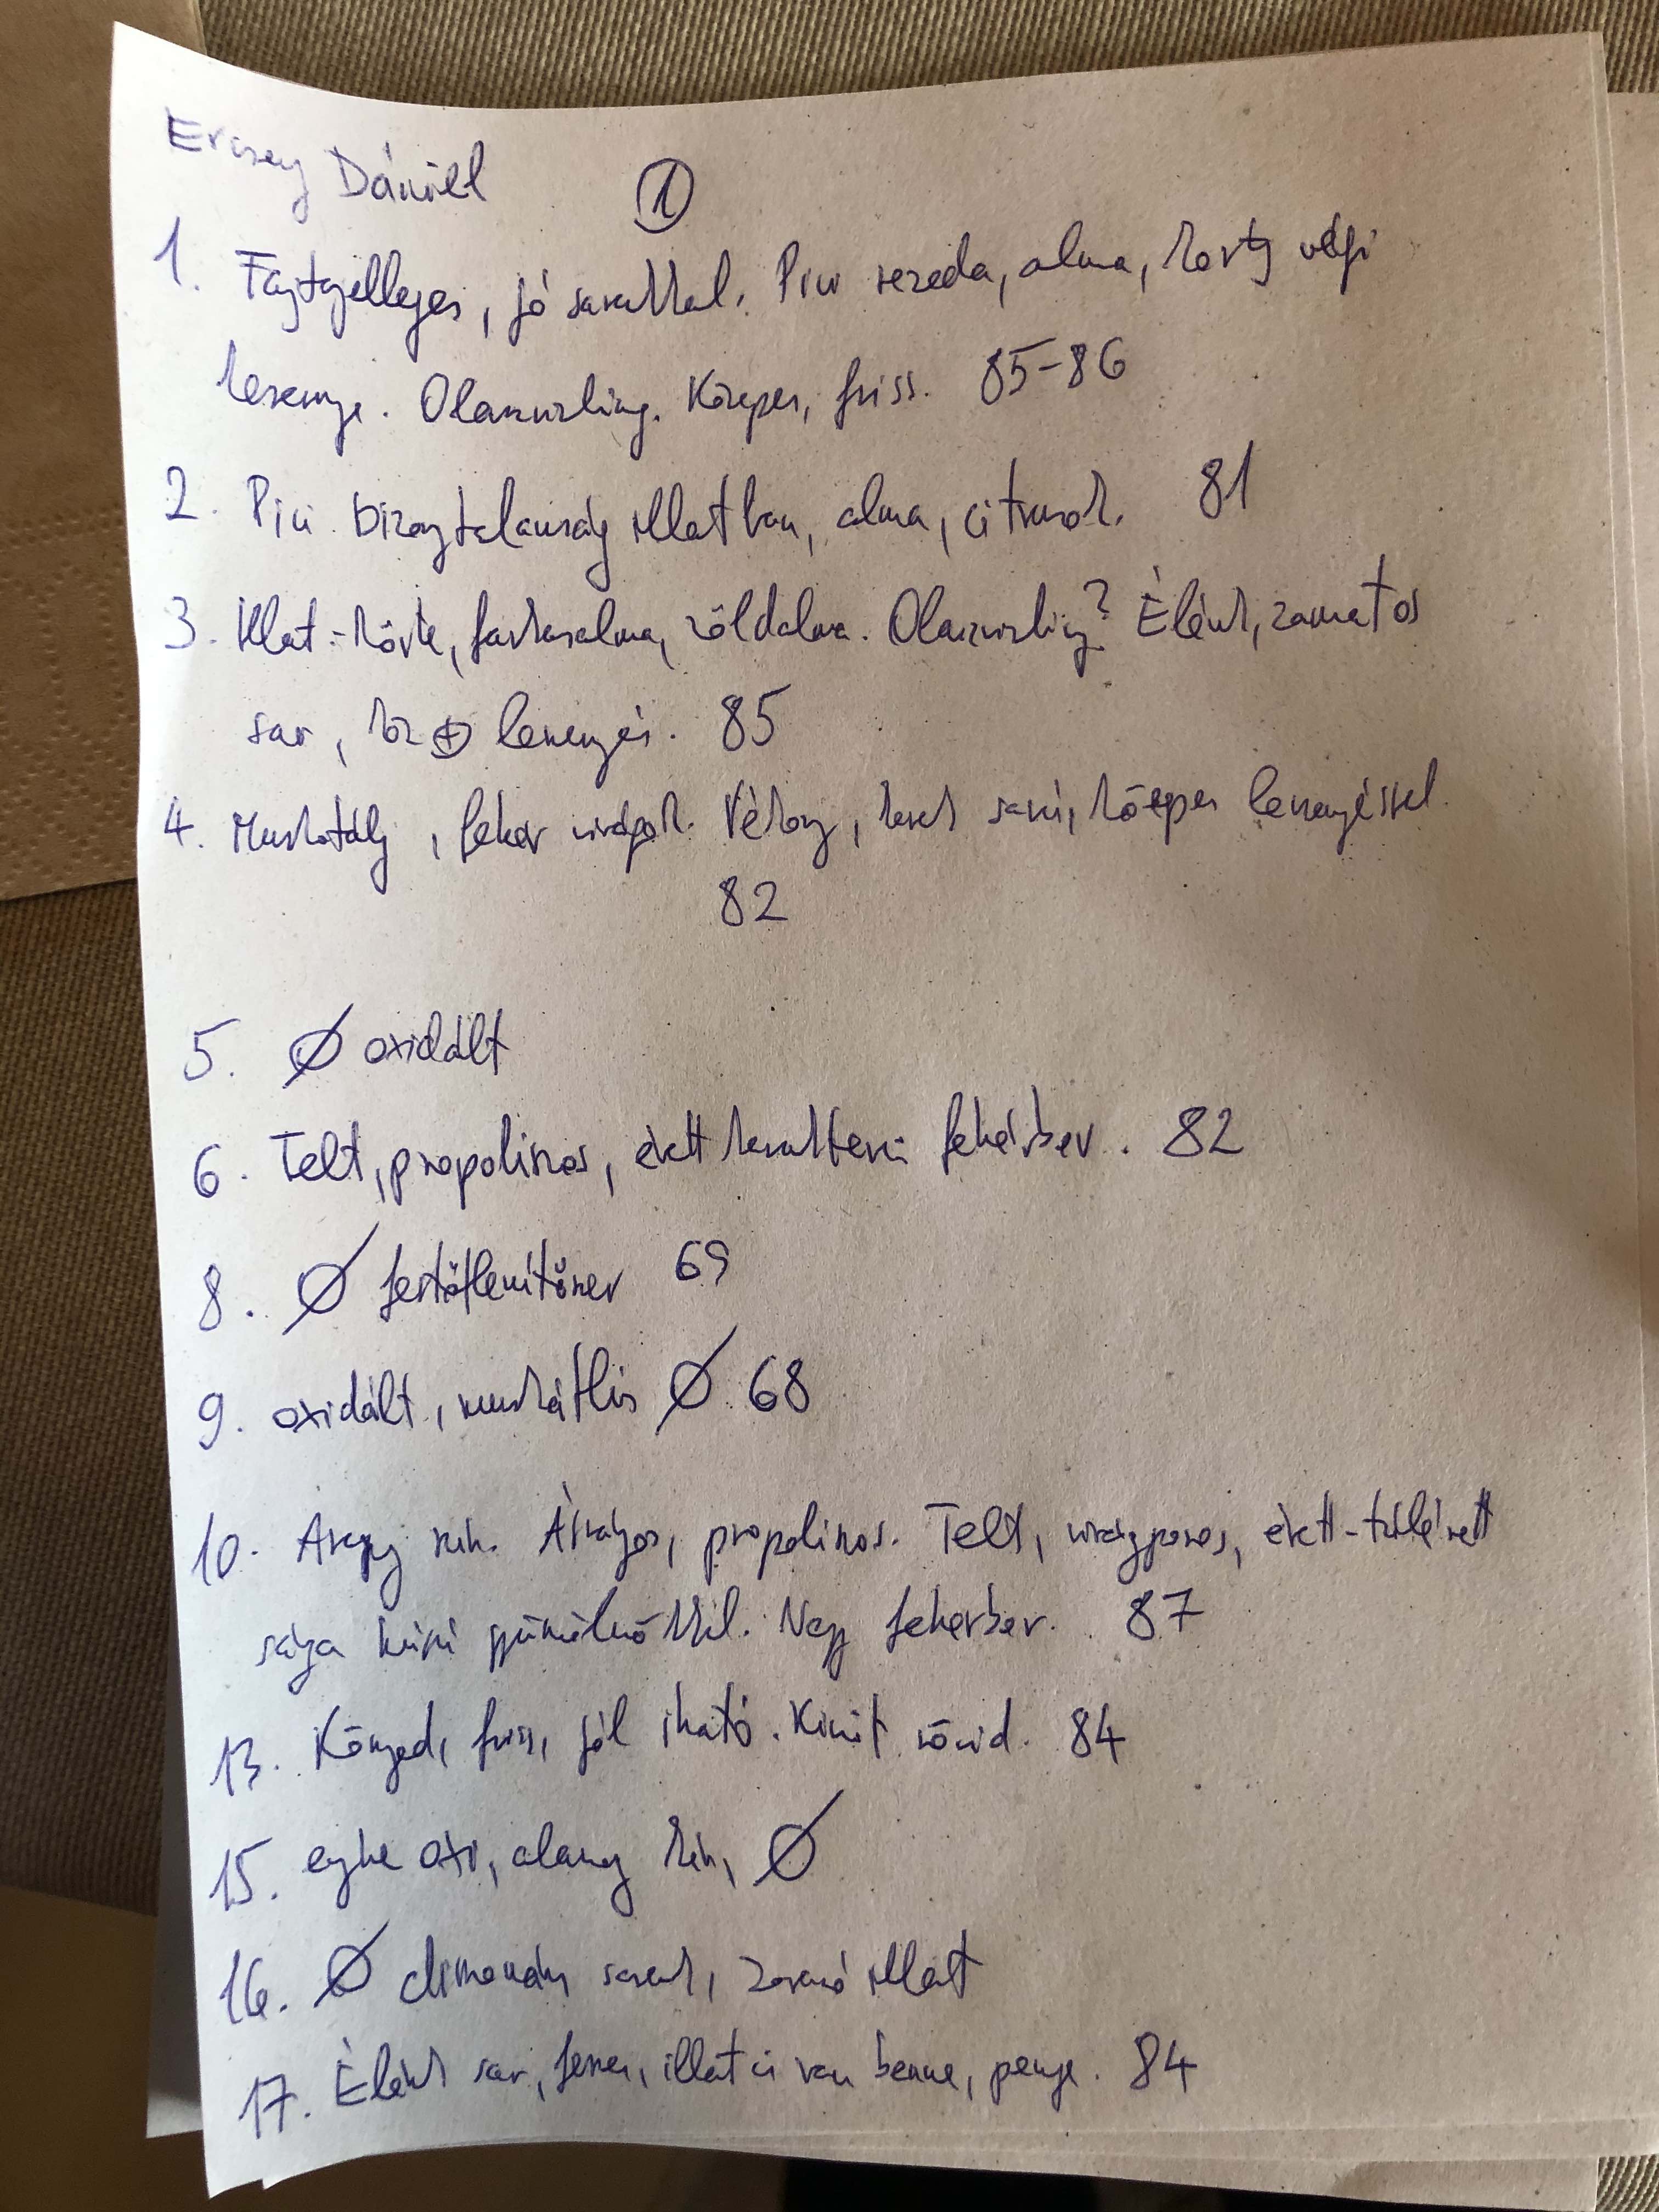 Ercsey Dániel
①
1. Fajtajelleges, jó savakkal. Pici rezeda, alma, korty végi
kesernye. Olaszrizling. Közepes, friss. 85-86
2. Pici bizonytalanság illatban, alma, citrusok. 81
3. Illat: körte, farkasalma, zöldalma. Olaszrizling? Élénk, zamatos
sav, köz ⊕ lecsengés. 85
4. Muskotály, fehér virágok. Vékony, kerek savú, közepes lecsengéssel.
82
5. Ø oxidált
6. Telt, propoliszos, érett karakterű fehérbor. 82
8. Ø fertőtlenítőszer 69
9. oxidált, muskátlis Ø 68
10. Arany szín. Ásványos, propoliszos. Telt, virágporos, érett-túlérett
sárga húsú gyümölcsökkel. Nagy fehérbor. 87
13. Könnyed, friss, jól iható. Kicsit rövid. 84
15. enyhe oxi, alany Ø
16. Ø disznóság savak, zavaró illat
17. Élénk sav, feszes, illat is van benne, penge. 84